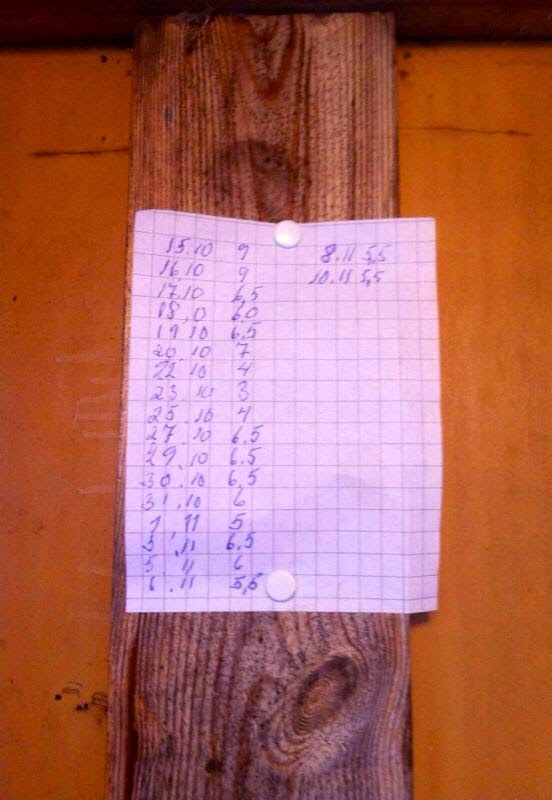 15.10 9
16.10 9
17.10 6,5
18.0 6,0
19.10 6,5
20.10 7
22.10 4
23.10 3
25.10 4
27.10 6.5
29.10 6.5
30.10 6,5
31.10 6
1.11 5
3.11 6.5
5.11 6
6.11 5,5
8.11 5,5
10.11 5,5